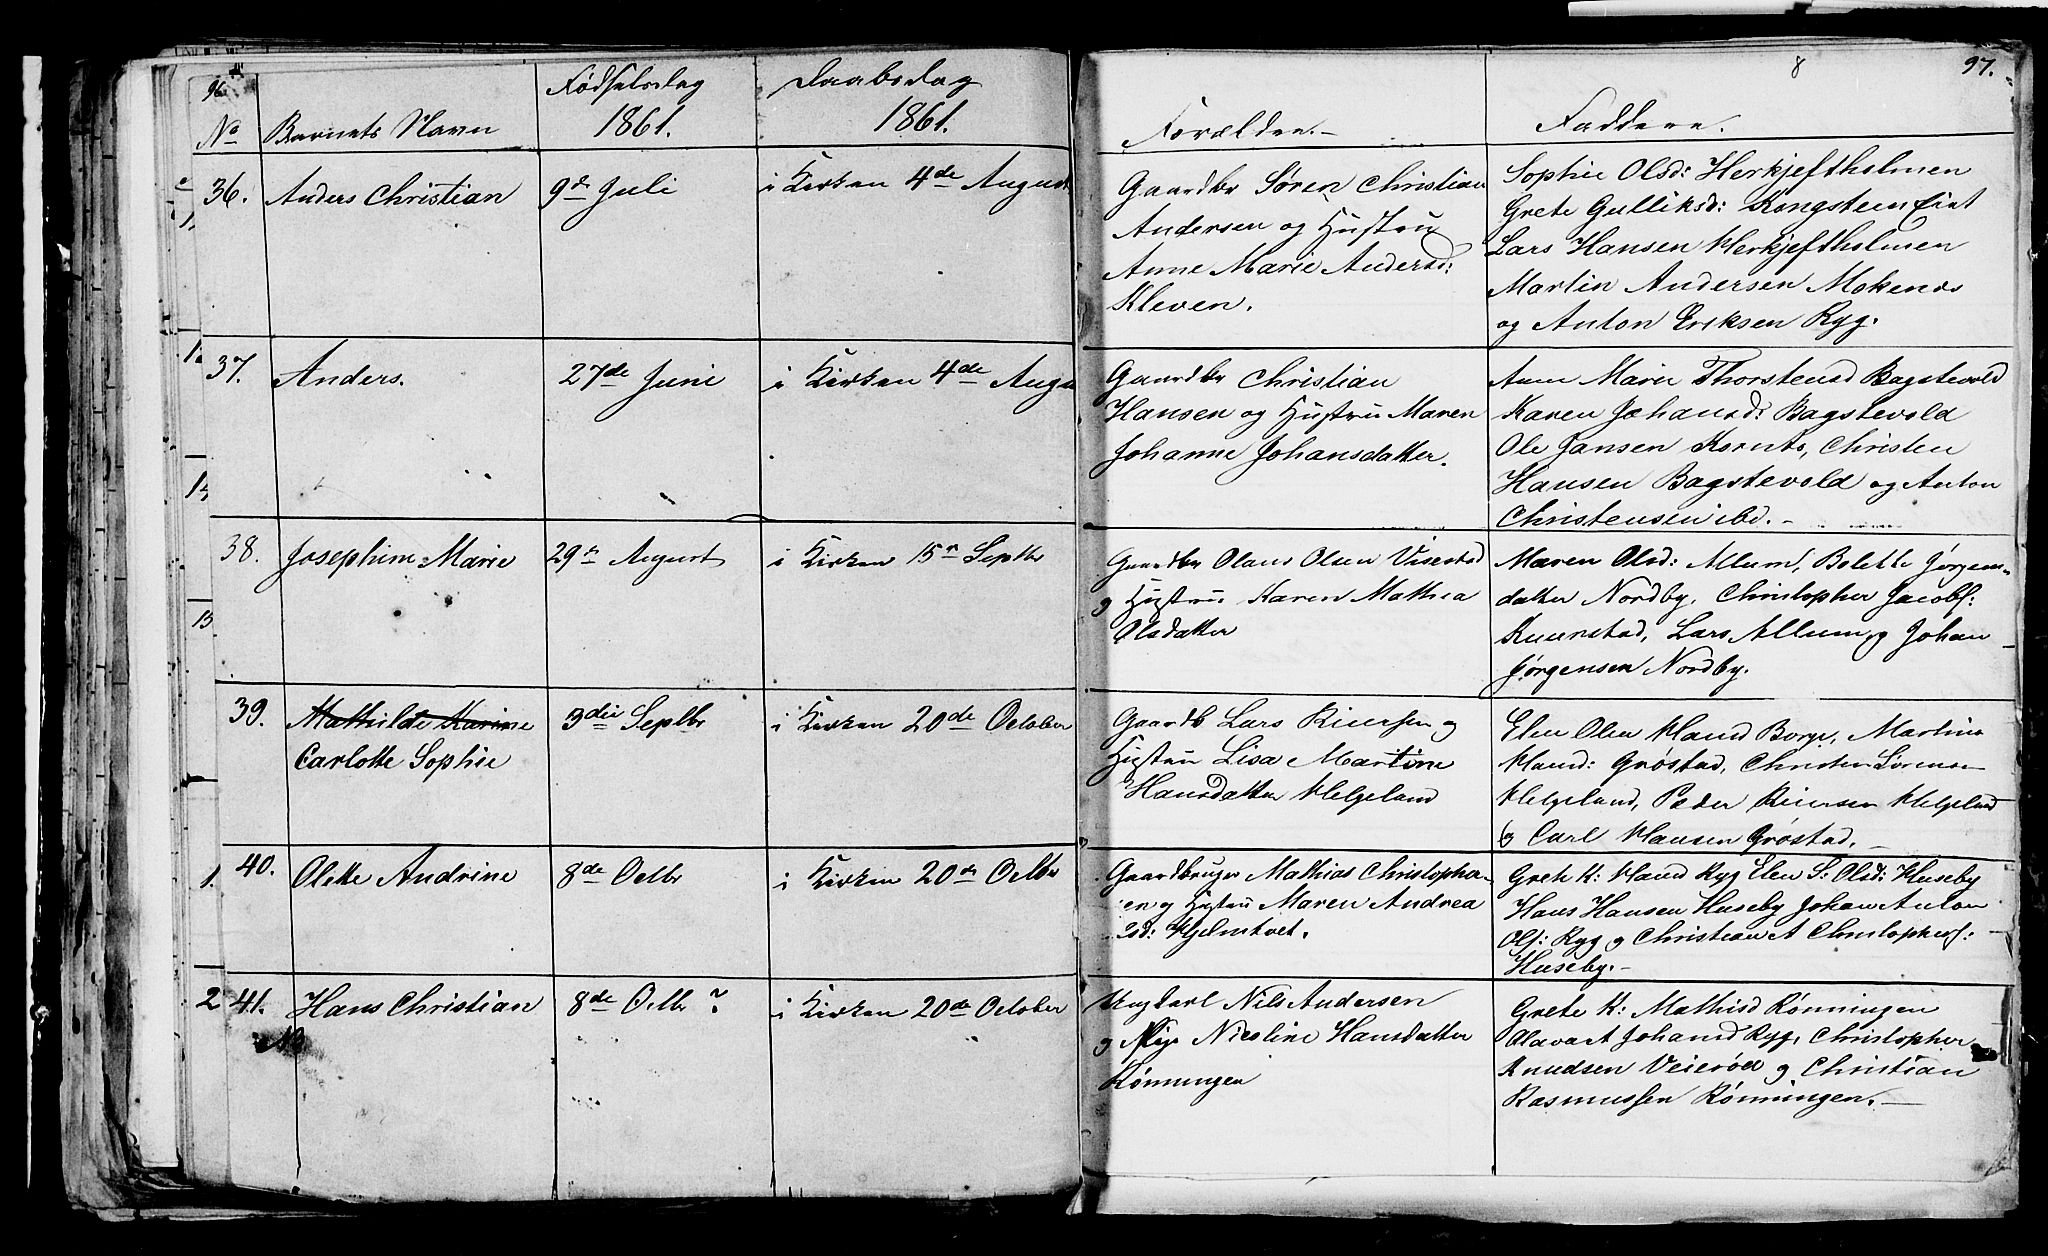 96.
Fødselsdag Daabsdag
No Barnets Navn 1861. 1861.
36. Anders Christian 9de Juli i Kirken 4de August
37. Anders. 27de Juni i Kirken 4de Augu
38. Josephine Marie 29de August i Kirken 15de Septbr
39. Mathilde Karine 3die Septbr i Kirken 20de October
Carlotte Sophie
40. Olette Andrine 8de Octbr i Kirken 20de Octbr
41. Hans Christian 8de Octbr ? i Kirken 20de October
8 97.
Forældre.- Faddere.
Gaardbr Søren Christian
Andersen og Hustru
Anne Marie Andersd:
Kleven.
Sophie Olsd: Herkjeftholmen
Grete Gulliksd: Kongsteen Eiet
Lars Hansen Herkjeftholmen
Martin Andersen Mekenæs
og Anton Eriksen Ryg.
Gaardbr Christian
Hansen og Hustru Maren
Johanne Johansdatter.
Anne Marie Thorstensd Bagstevold
Karen Johansd: Bagstevold
Ole Jansen Kornts, Christen
Hansen Bagstevold og Anton
Christensen ibd. -
Gaardbr Olaus Olsen Visestad
og Hustru Karen Mathea
Olsdatter
Maren Olsd: Allum, Bolette Jørgens-
datter Nordby, Christopher Jacobs:
Kuerstad, Lars Allum og Johan
Jørgensen Nordby.
Gaardb Lars Riersen og
Hustru Lisa Martine
Hansdatter Helgeland
Elen Olea Hansd Borge, Martine
Hansd: Grøstad, Christen Sørensen
Helgeland, Peder Reiersen Helgeland
og Carl Hansen Grøstad. -
Gaardbruger Mathias Christophers-
en og Hustru Maren Andrea
Olsd: Hjelmtvet.
Grete K: Hansd Ryg Elen S: Olsd: Huseby
Hans Hansen Huseby Johan Anton
Ols: Ryg og Christian A Christophers:
Huseby. -
Ungkarl Nils Andersen
og Pige Nicoline Hansdatter
Rønningen
Grete K: Mathisd Rønningen
Olava A Johansd Ryg, Christopher
Knudsen Veierød og Christian
Rasmussen Rønningen. -